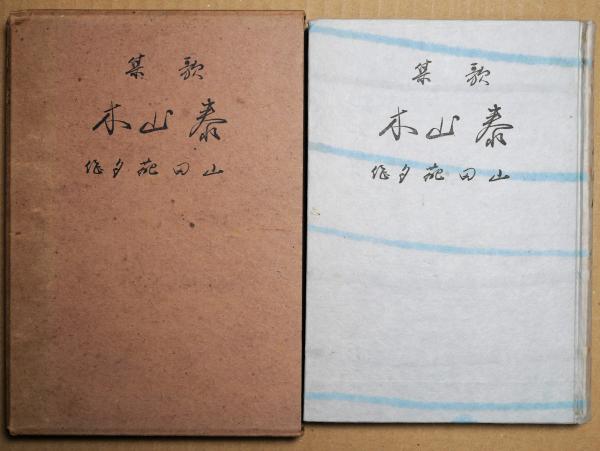 歌集
泰山木
山田葩夕作
歌集
泰山木
山田葩夕作